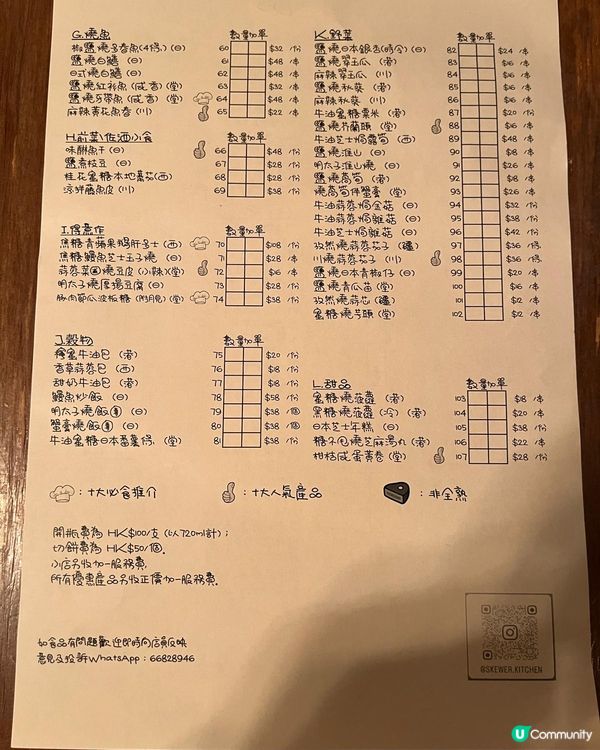 G.燒魚 數量加單
椒鹽燒多春魚(4條.) (日) 60 $32 /份
鹽燒白鱔 (日) 61 $48 /串
日式燒白鱔 (日) 62 $48 /串
鹽燒紅衫魚 (咸香) (堂) 63 $32 /串
鹽燒牙帶魚 (咸香) (堂) 64 $48 /串
麻辣黃花魚春 (川) 65 $22 /串
H.前菜/佐酒小食 數量加單
味醂魚干 (日) 66 $48 /份
鹽煮枝豆 (日) 67 $28 /份
桂花蜜糖本地番茄(西) 68 $28 /份
涼拌顏魚皮 (川) 69 $38 /份
I.得意作 數量加單
焦糖青蘋果鵝肝多士 (西) 70 $108 /份
焦糖鰻魚芝士玉子燒 (日) 71 $28 /串
蒜蓉菜圃燒豆皮 (小辣)(堂) 72 $16 /串
明太子燒厚揚豆腐 (日) 73 $28 /份
豚肉節瓜波板糖 (附月見) (堂) 74 $38 /份
J.穀物 數量加單
檸蜜牛油包 (港) 75 $20 /份
香草蒜蓉包 (西) 76 $18 /份
甜奶牛油包 (港) 77 $18 /份
鰻魚炒飯 (日) 78 $58 /份
明太子燒飯 (日) 79 $38 /個
蟹膏燒飯 (日) 80 $38 /個
牛油蜜糖日本番薯條. (堂) 81 $38 /份
K.野菜 數量加單
鹽燒日本銀杏(時令) (日) 82 $24 /串
鹽燒翠玉瓜 (港) 83 $14 /串
麻辣翠玉瓜 (川) 84 $16 /串
鹽燒秋葵 (港) 85 $16 /串
麻辣秋葵 (川) 86 $18 /串
牛油蜜糖粟米 (港) 87 $20 /份
鹽燒芥蘭頭 (堂) 88 $16 /串
牛油芝士焗露筍 (西) 89 $48 /串
鹽燒淮山 (日) 90 $18 /串
明太子淮山燒 (日) 91 $26 /串
鹽燒萵筍 (港) 92 $18 /串
燒萵筍伴蟹膏 (堂) 93 $28 /串
牛油蒜蓉焗金菇 (日) 94 $32 /份
牛油蒜蓉焗雜菇 (日) 95 $38 /份
牛油芝士焗雜菇 (日) 96 $42 /份
孜然燒蒜蓉茄子 (疆) 97 $36 /條
川燒蒜蓉茄子 (川) 98 $36 /條
鹽燒日本青椒仔 (日) 99 $20 /串
鹽燒青瓜苗 (堂) 100 $16 /串
孜然燒蒜芯 (疆) 101 $12 /串
蜜糖燒芋頭 (堂) 102 $12 /串
L.甜品 數量加單
蜜糖燒菠蘿 (港) 103 $18 /串
黑糖燒菠蘿 (冷) (港) 104 $20 /串
日本芝士年糕 (日) 105 $38 /份
糖不甩燒芝麻湯丸 (港) 106 $22 /串
柑桔咸蛋黃卷 (堂) 107 $28 /份
: 十大必食推介 : 十大人氣產品 : 非全熟
開瓶費為 HK$100/支 (以720ml計) ;
切餅費為 HK$50/個.
小店另收加一服務費.
所有優惠產品另收正價加一服務費.
如食品有問題歡迎即時向店員反映
意見及投訴WhatsApp : 66828946
@SKEWER.KITCHEN
U Community